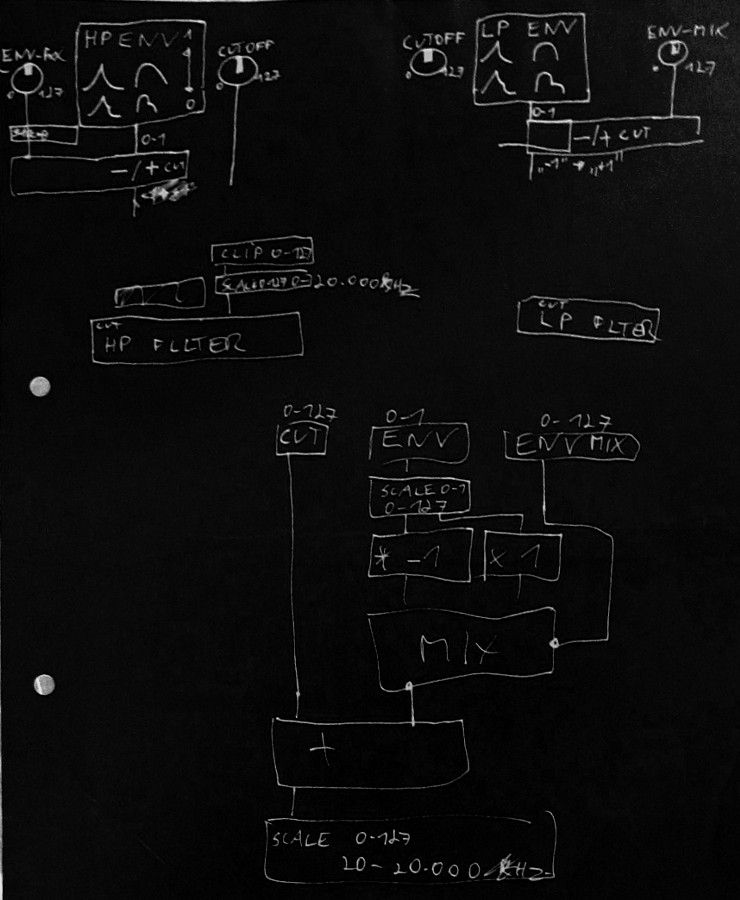 HP ENV 1
0
CUTOFF
127
0
127
0-1
-/+ CUT
CUTOFF
127
LP ENV
ENV-MIX
127
0-1
-/+ CUT
"-1" → "+1"
CLIP 0-127
20.000
HZ
CUT
HP FILTER
CUT
LP FLTER
0-127
CUT
0-1
ENV
0-127
ENV MIX
SCALE 0-1
0-127
* -1
x 1
MIX
+
SCALE 0-127
20-20.000 HZ